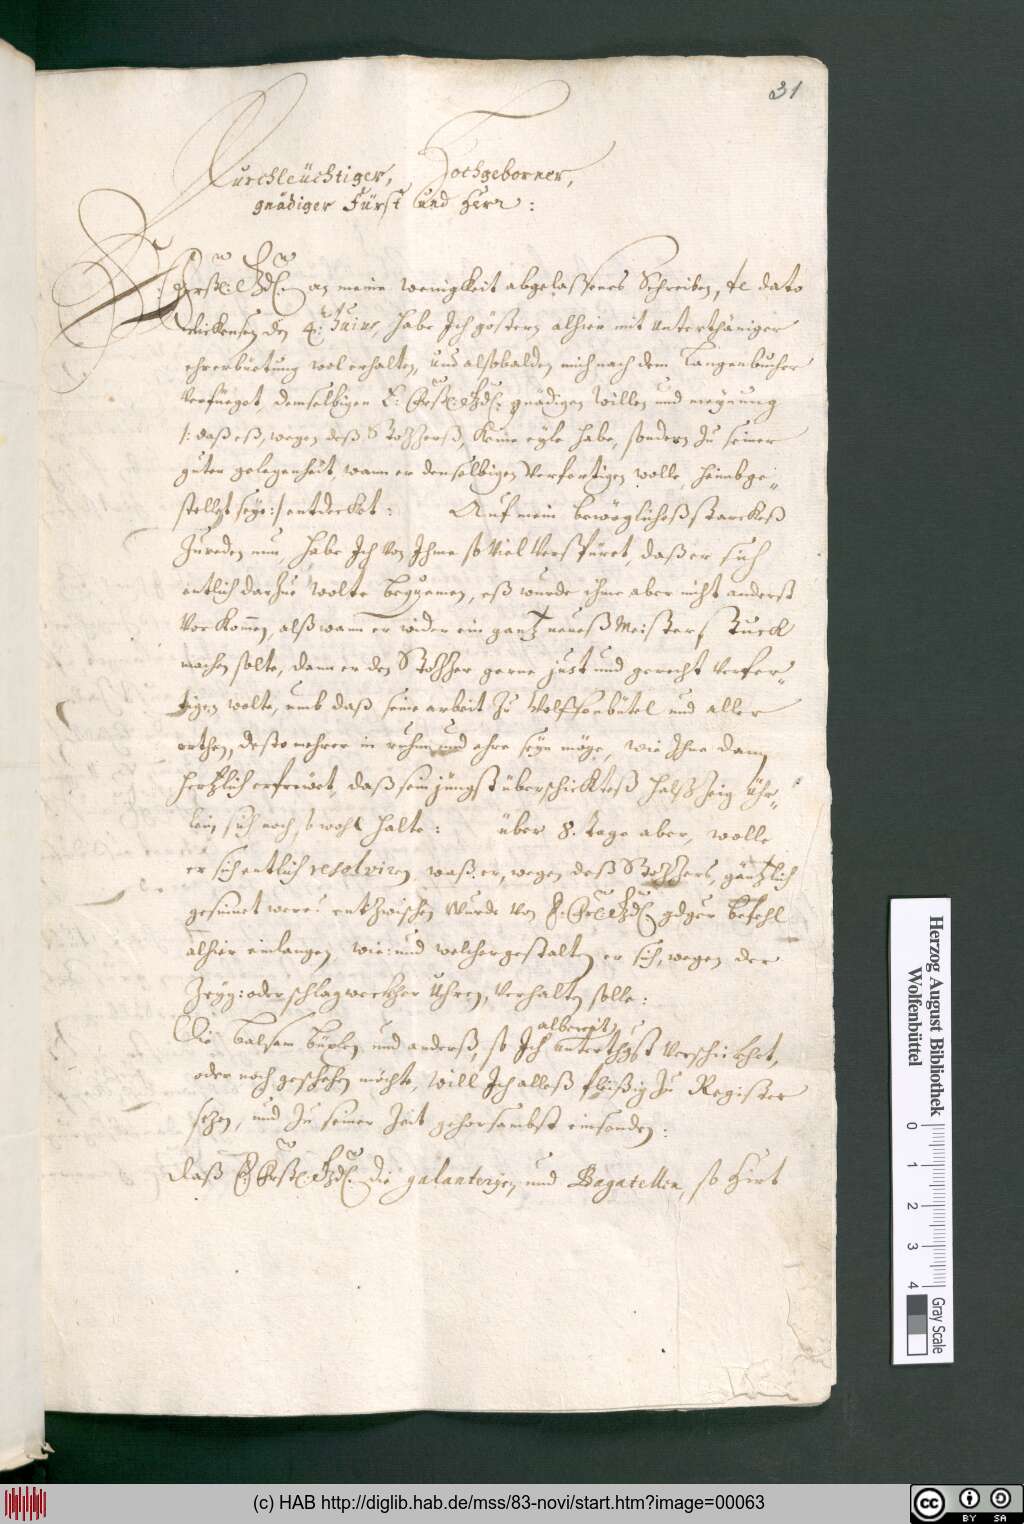 31
Durchleüchtiger, Hochgeborner,
gnädiger Fürst und Herr:
E: Fürstl: Gd: an meine wenigkeit abgelaßenes Schreiben, de dato
den 4: Junii, habe Ich gästern alhier mit unterthäniger
ehrerbietung wol erhalten, und alsobalden mich nach dem Langenbucher
verfüeget, demselbigen E: Fürstl: Gd: gnädigen willen und meynung
/: daß eß, wegen deß keine eyle habe, sondern Zu seiner
guten gelegenheit, wann er denselbigen verfertigen wolle, heimbge-
stellet seye :/ entdecket: Auf mein bewögliches starckeß
Zureden nun, habe Ich von Ihme so viel verspüret, daß er sich
entlich darZue wolte bequemen, eß wurde ihme aber nicht anderst
vorkommen, alß wann er wider ein gantz neueß Meisterstuck
machen solte, dann er den gerne just und gerecht verfer-
tigen wolte, umb daß seine arbeit Zu Wolffenbütel und aller
orthen, desto mehrer in ruhm und ehre seyn möge, wie Ihne dann
hertzlich erfrewet, daß sein jüngst überschickteß halß Zeig Uhr-
lein, sich noch so wohl halte: über 8. Tage aber, wolle
er sich entlich resolviren, waß er, wegen deß gäntzlich
gesinnet were: entzwischen wurde von E: Fürstl: Gd: gdger befehl
alhier einlangen, wie: und welchergestalten er sich, wegen der
Zeyg: oder schlagwerckher Uhren, verhalten solle:
Die balsam büxlen, und anderß, so Ich albereit unterthgst verschickhet,
oder noch geschehen möchte, will Ich alleß fleißig Zu Register
setzen, und Zu seiner Zeit gehorsambst einsenden:
Daß E: Fürstl: Gd: die galanterien, und Bagatellen, so Hirt
Herzog August Bibliothek
Wolfenbüttel
0 1 2 3 4
Gray Scale
(c) HAB http://diglib.hab.de/mss/83-novi/start.htm?image=00063
cc BY SA